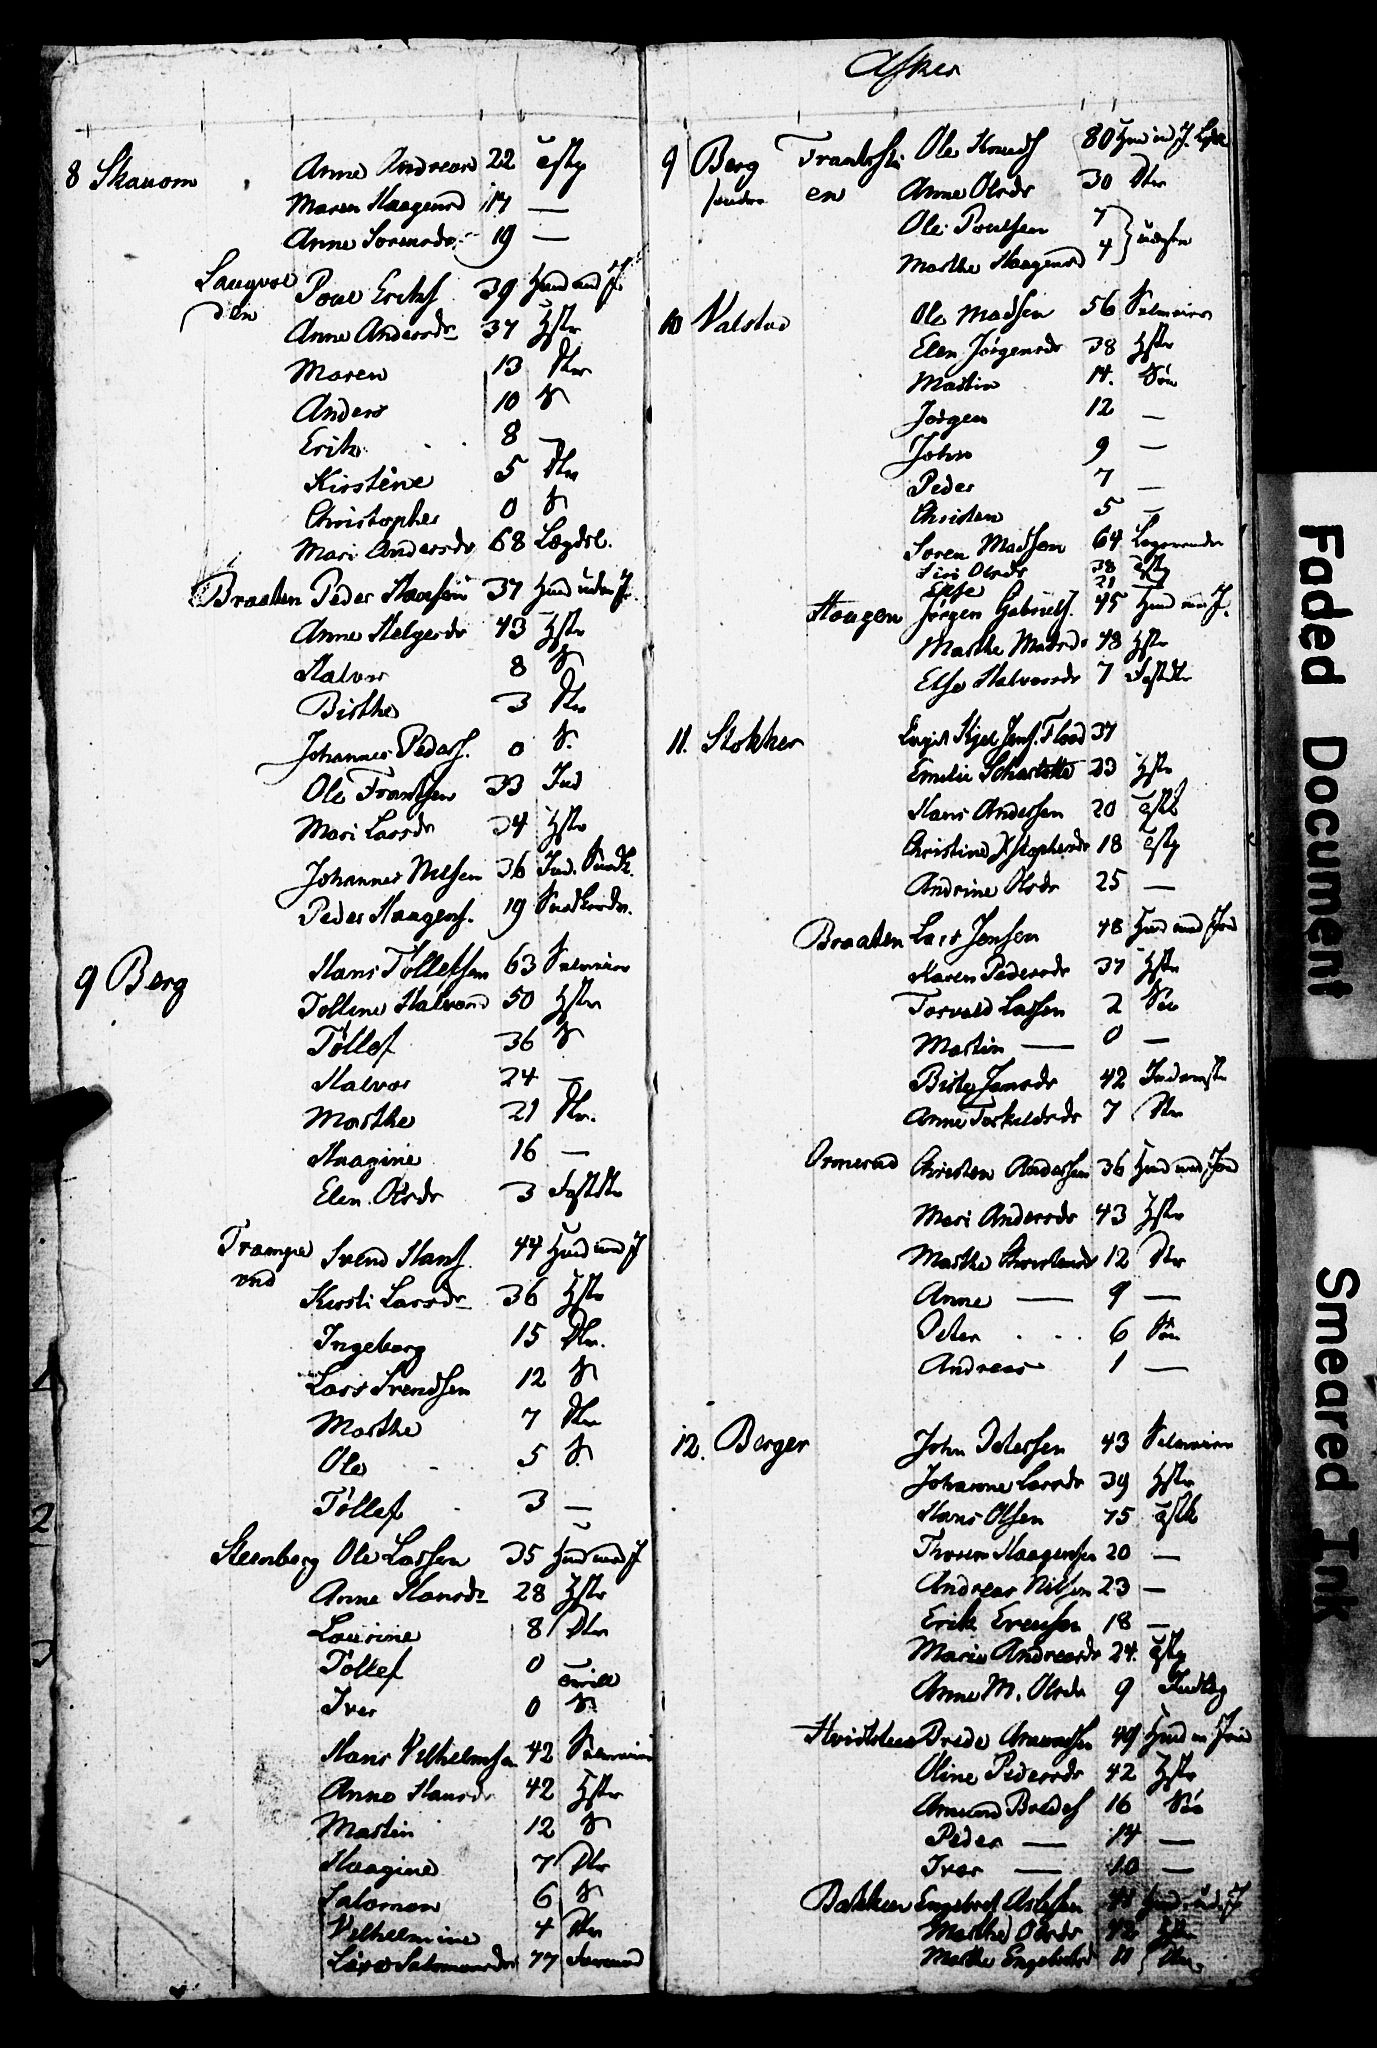 8 Skauom Anne Andreasd 22 tjstp
Maren Haagensd 17 —
Anne Sorensdr. 19 —
Langvol Poul Eriks 39 Huusd med J.
den
Anne Andersdr 37 Hstr
Maren 13 Dtr
Anders 10 S
Erik 8 —
Kirstine 5 Dtr
Christopher 0 S
Mari Andersdr 68 Lægdsl.
Braaten Peder Hansen 37 Huusd uden J.
Anne Helgesdr 43 Hstr
Halvor 8 S
Birthe 3 Dtr
Johannes Peders. 0 S.
Ole Frantsen 33 Ind
Mari Larsdr 34 Hstr
Johannes Nilsen 36 Ind. Snedk.
Peder Haagens. 19 Snedker
9 Berg Hans Tollefsen 63 Selveier
Tolline Halvorsd 50 Hstr
Tøllef 36 S
Halvor 24 —
Marthe 21 Dtr.
Haagine 16 —
Elen Olsdr 3 Fostdtr
Trampe Svend Hans. 44 Huusd med J
rud
Kirsti Larsdr 36 Hstr
Ingeborg 15 Dtr.
Lars Svendsen 12 S
Marthe 7 Dtr
Ole 5 S.
Tøllef 3 —
Steenberg Ole Larsen 35 Huusd med J
Anne Hansdr 28 Hstr
Laurine 8 Dtr
Tollef 0 —
Iver 0 S.
Hans Vilhelmsen 42 Selveier
Anne Hansdr 42 Hstr
Martin 12 S
Haagine 7 Dtr
Salomon 6 S
Vilhelmine 4 Dtr
Salomonsdr 77
Asker
9 Berg Ole Knuds 80 Huusd med J.
søndre en Anne Olsdr 30 Dtr
Ole Poulsen 7
Marthe Haagensd 4
10 Valstad Ole Madsen 56 Selveier
Elen Jörgensdr 38 Hstr
Martin 14. Sön
Jørgen 12 —
John 9 —
Peder 7 —
Christen 5 —
Soren Madsen 64 Logerende
Siri Olsdr 38 tjstp
Else 21 —
Haugen Jørgen Gabriels. 45 Huusd med J.
Marthe Madsdr 48 Hstr
Else Halvorsdr 7 Fostdtr
11. Stokker Kjel Jens. Flood 37
Emilie Scharlotte 23 Hstr
Hans Andersen 20 tjstk
Christine Xstophersdr 18 tjstp
Andrine Olsdr 25 —
Braaten Lars Jensen 48 Huusd med Jord
Karen Pedersdr 37 Hstr
Torvald Larsen 2 Sön
Martin — 0 —
Birte Jensdr 42 Inderste
Anne Torkildsdr 7 Dtr
Ormerud Christen Andersen 36 Huusd med Jord
Mari Andersdr 43 Hstr
Marthe Christensd 12 Dtr
Anne — 9 —
Peter 6 Sön
Andreas 1 —
12. Berger John Petersen 43 Selveier
Johanne Larsdr 39 Hstr
Hans Olsen 75 tjstk
Thorsen Haagensen 20 —
Andreas Nilsen 23 —
Erik Evensen 18 —
Marie Andreasdr 24. tjstp
Anne M. Olsdr 9
Hvidsteen Brede Amundsen 49 Huusd m Jord
Oline Pedersdr 42 Hstr
Amund Bredes 16 Sön
Peder — 14 —
Iver — 10 —
Bakken Engebret Aslesen 41 Huusd uden J
Marthe Olsdr 42 Hstr
Marthe Engebretsd 11 Dtr.
1
2
3
Faded Document
Smeared Ink